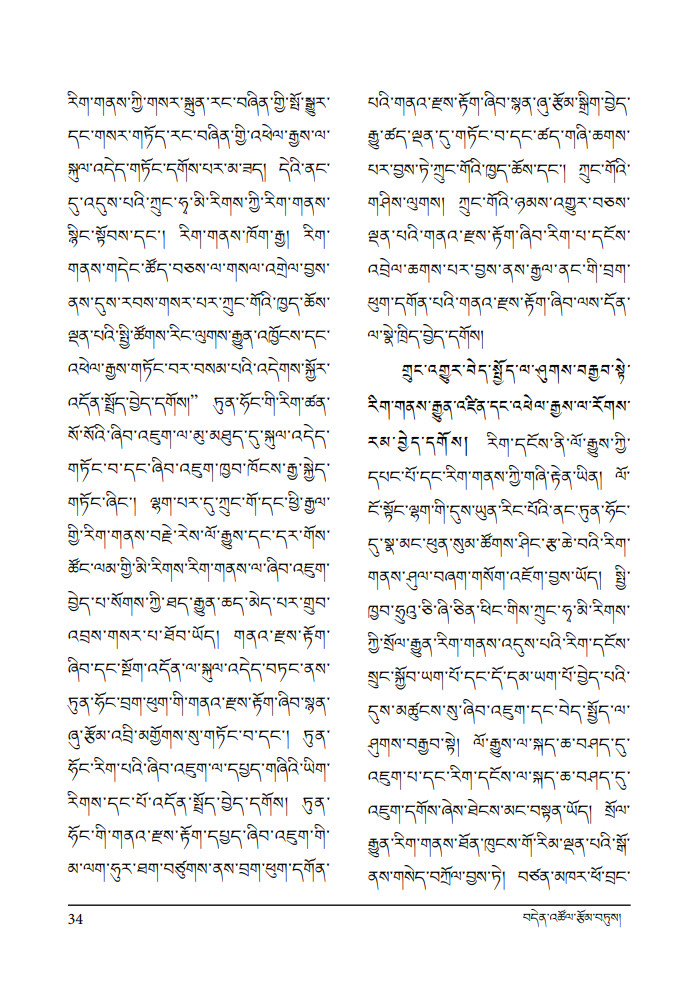 རིག་གནས་ཀྱི་གསར་སྐྲུན་རང་བཞིན་གྱི་སྤོ་སྒྱུར་
དང་གསར་གཏོད་རང་བཞིན་གྱི་འཕེལ་རྒྱས་ལ་
སྐུལ་འདེད་གཏོང་དགོས་པར་མ་ཟད། དེའི་ནང་
དུ་འདུས་པའི་ཀྲུང་ཧྭ་མི་རིགས་ཀྱི་རིག་གནས་
སྙིང་སྟོབས་དང་། རིག་གནས་ཁོག་རྒྱ། རིག་
གནས་གདེང་ཚོད་བཅས་ལ་གསལ་འགྲེལ་བྱས་
ནས་དུས་རབས་གསར་པར་ཀྲུང་གོའི་ཁྱད་ཆོས་
ལྡན་པའི་སྤྱི་ཚོགས་རིང་ལུགས་རྒྱུན་འཁྱོངས་དང་
འཕེལ་རྒྱས་གཏོང་བར་བསམ་པའི་འདེགས་སྐྱོར་
འདོན་སྤྲོད་བྱེད་དགོས།” ཏུན་ཧོང་གི་རིག་ཚན་
སོ་སོའི་ཞིབ་འཇུག་ལ་མུ་མཐུད་དུ་སྐུལ་འདེད་
གཏོང་བ་དང་ཞིབ་འཇུག་ཁྱབ་ཁོངས་རྒྱ་སྐྱེད་
གཏོང་ཞིང་། ལྷག་པར་དུ་ཀྲུང་གོ་དང་ཕྱི་རྒྱལ་
གྱི་རིག་གནས་བརྗེ་རེས་ལོ་རྒྱུས་དང་དར་གོས་
ཚོང་ལམ་གྱི་མི་རིགས་རིག་གནས་ལ་ཞིབ་འཇུག་
བྱེད་པ་སོགས་ཀྱི་ཐད་རྒྱུན་ཆད་མེད་པར་གྲུབ་
འབྲས་གསར་པ་ཐོབ་ཡོད། གནའ་རྫས་རྟོག་
ཞིབ་དང་སྔོག་འདོན་ལ་སྐུལ་འདེད་བཏང་ནས་
ཏུན་ཧོང་བྲག་ཕུག་གི་གནའ་རྫས་རྟོག་ཞིབ་སྙན་
ཞུ་རྩོམ་འབྲི་མགྱོགས་སུ་གཏོང་བ་དང་། ཏུན་
ཧོང་རིག་པའི་ཞིབ་འཇུག་ལ་དཔྱད་གཞིའི་ཡིག་
རིགས་དང་པོ་འདོན་སྤྲོད་བྱེད་དགོས། ཏུན་
ཧོང་གི་གནའ་རྫས་རྟོག་དཔྱད་ཞིབ་འཇུག་གི་
མ་ལག་ཧུར་ཐག་བཙུགས་ནས་བྲག་ཕུག་དགོན་
པའི་གནའ་རྫས་རྟོག་ཞིབ་སྙན་ཞུ་རྩོམ་སྒྲིག་བྱེད་
རྒྱུ་ཚད་ལྡན་དུ་གཏོང་བ་དང་ཚད་གཞི་ཆགས་
པར་བྱས་ཏེ་ཀྲུང་གོའི་ཁྱད་ཆོས་དང་། ཀྲུང་གོའི་
གཤིས་ལུགས། ཀྲུང་གོའི་ཉམས་འགྱུར་བཅས་
ལྡན་པའི་གནའ་རྫས་རྟོག་ཞིབ་རིག་པ་དངོས་
འབྲེལ་ཆགས་པར་བྱས་ནས་རྒྱལ་ནང་གི་བྲག་
ཕུག་དགོན་པའི་གནའ་རྫས་རྟོག་ཞིབ་ལས་དོན་
ལ་སྣེ་ཁྲིད་བྱེད་དགོས།
གྲུང་འགྱུར་བེད་སྤྱོད་ལ་ཤུགས་བརྒྱབ་སྟེ་
རིག་གནས་རྒྱུན་འཛིན་དང་འཕེལ་རྒྱས་ལ་རོགས་
རམ་བྱེད་དགོས། རིག་དངོས་ནི་ལོ་རྒྱུས་ཀྱི་
དཔང་པོ་དང་རིག་གནས་ཀྱི་གཞི་རྟེན་ཡིན། ལོ་
ངོ་སྟོང་ལྷག་གི་དུས་ཡུན་རིང་པོའི་ནང་ཏུན་ཧོང་
དུ་སྣ་མང་ཕུན་སུམ་ཚོགས་ཤིང་རྩ་ཆེ་བའི་རིག་
གནས་ཤུལ་བཞག་གསོག་འཇོག་བྱས་ཡོད། སྤྱི་
ཁྱབ་ཧྲུའུ་ཅི་ཞི་ཅིན་ཕིང་གིས་ཀྲུང་ཧྭ་མི་རིགས་
ཀྱི་སྲོལ་རྒྱུན་རིག་གནས་འདུས་པའི་རིག་དངོས་
སྲུང་སྐྱོབ་ཡག་པོ་དང་དོ་དམ་ཡག་པོ་བྱེད་པའི་
དུས་མཚུངས་སུ་ཞིབ་འཇུག་དང་བེད་སྤྱོད་ལ་
ཤུགས་བརྒྱབ་སྟེ། ལོ་རྒྱུས་ལ་སྐད་ཆ་བཤད་དུ་
འཇུག་པ་དང་རིག་དངོས་ལ་སྐད་ཆ་བཤད་དུ་
འཇུག་དགོས་ཞེས་ཐེངས་མང་བསྟན་ཡོད། སྲོལ་
རྒྱུན་རིག་གནས་ཐོན་ཁུངས་གོ་རིམ་ལྡན་པའི་སྒོ་
ནས་གསེད་བཀྲོལ་བྱས་ཏེ། བཙན་མཁར་ཕོ་བྲང་
34
བདེན་འཚོལ་རྩོམ་བཏུས།